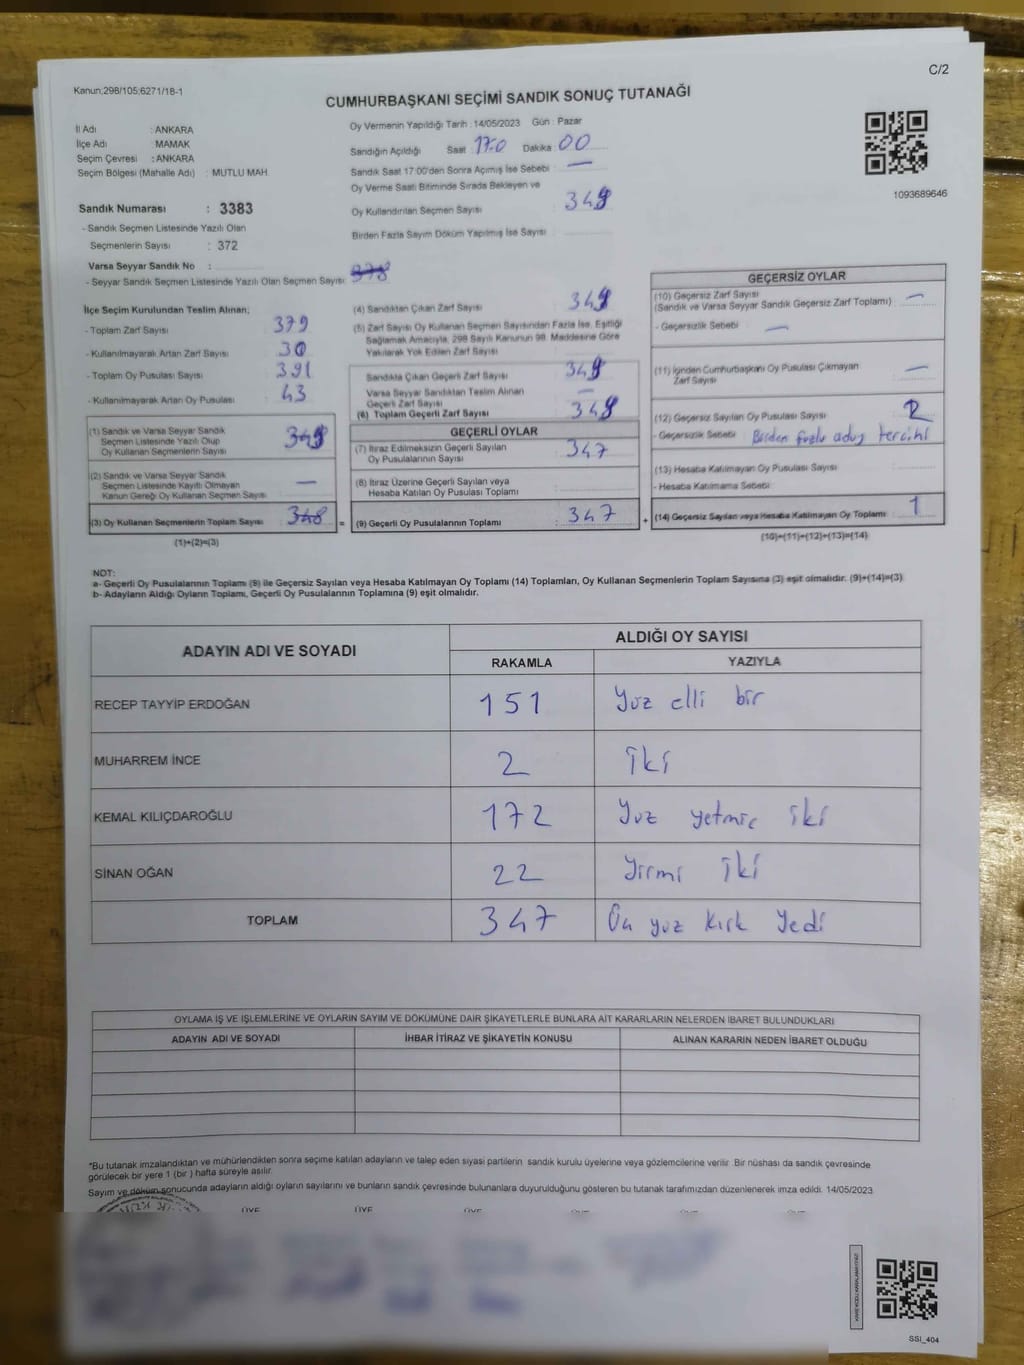 C/2
Kanun:298/105;6271/18-1
CUMHURBAŞKANI SEÇİMİ SANDIK SONUÇ TUTANAĞI
İl Adı : ANKARA
İlçe Adı : MAMAK
Seçim Çevresi : ANKARA
Seçim Bölgesi (Mahalle Adı) : MUTLU MAH.
Sandık Numarası : 3383
- Sandık Seçmen Listesinde Yazılı Olan
Seçmenlerin Sayısı : 372
Varsa Seyyar Sandık No :
- Seyyar Sandık Seçmen Listesinde Yazılı Olan Seçmen Sayısı:
Oy Vermenin Yapıldığı Tarih : 14/05/2023 Gün : Pazar
Sandığın Açıldığı Saat : 17.0 Dakika : 00
Sandık Saat 17:00'den Sonra Açımış İse Sebebi : —
Oy Verme Saati Bitiminde Sırada Bekleyen ve
Oy Kullandırılan Seçmen Sayısı : 349
Birden Fazla Sayım Döküm Yapılmış İse Sayısı :
1093689646
İlçe Seçim Kurulundan Teslim Alınan;
- Toplam Zarf Sayısı : 379
- Kullanılmayarak Artan Zarf Sayısı : 30
- Toplam Oy Pusulası Sayısı : 391
- Kullanılmayarak Artan Oy Pusulası : 43
(1) Sandık ve Varsa Seyyar Sandık
Seçmen Listesinde Yazılı Olup
Oy Kullanan Seçmenlerin Sayısı :
(2) Sandık ve Varsa Seyyar Sandık
Seçmen Listesinde Kayıtlı Olmayan
Kanun Gereği Oy Kullanan Seçmen Sayısı : —
(3) Oy Kullanan Seçmenlerin Toplam Sayısı : 348 =
(1)+(2)=(3)
(4) Sandıktan Çıkan Zarf Sayısı : 349
(5) Zarf Sayısı Oy Kullanan Seçmen Sayısından Fazla İse, Eşitliği
Sağlamak Amacıyla, 298 Sayılı Kanunun 98. Maddesine Göre
Yakılarak Yok Edilen Zarf Sayısı :
Sandıkta Çıkan Geçerli Zarf Sayısı : 349
Varsa Seyyar Sandıktan Teslim Alınan
Geçerli Zarf Sayısı : —
(6) Toplam Geçerli Zarf Sayısı : 349
GEÇERLİ OYLAR
(7) İtiraz Edilmeksizin Geçerli Sayılan
Oy Pusulalarının Sayısı : 347
(8) İtiraz Üzerine Geçerli Sayılan veya
Hesaba Katılan Oy Pusulası Toplamı :
(9) Geçerli Oy Pusulalarının Toplamı : 347 +
GEÇERSİZ OYLAR
(10) Geçersiz Zarf Sayısı
(Sandık ve Varsa Seyyar Sandık Geçersiz Zarf Toplamı) : —
- Geçersizlik Sebebi : —
(11) İçinden Cumhurbaşkanı Oy Pusulası Çıkmayan
Zarf Sayısı : —
(12) Geçersiz Sayılan Oy Pusulası Sayısı :
- Geçersizlik Sebebi : Birden fazla aday tercihi
(13) Hesaba Katılmayan Oy Pusulası Sayısı :
- Hesaba Katılmama Sebebi :
(14) Geçersiz Sayılan veya Hesaba Katılmayan Oy Toplamı : 1
(10)+(11)+(12)+(13)=(14)
NOT:
a- Geçerli Oy Pusulalarının Toplamı (9) ile Geçersiz Sayılan veya Hesaba Katılmayan Oy Toplamı (14) Toplamları, Oy Kullanan Seçmenlerin Toplam Sayısına (3) eşit olmalıdır. (9)+(14)=(3)
b- Adayların Aldığı Oyların Toplamı, Geçerli Oy Pusulalarının Toplamına (9) eşit olmalıdır.
ADAYIN ADI VE SOYADI ALDIĞI OY SAYISI
RAKAMLA YAZIYLA
RECEP TAYYİP ERDOĞAN 151 Yüz elli bir
MUHARREM İNCE 2 iki
KEMAL KILIÇDAROĞLU 172 Yüz yetmiş iki
SİNAN OĞAN 22 Yirmi iki
TOPLAM 347 Üç yüz kırk yedi
OYLAMA İŞ VE İŞLEMLERİNE VE OYLARIN SAYIM VE DÖKÜMÜNE DAİR ŞİKAYETLERLE BUNLARA AİT KARARLARIN NELERDEN İBARET BULUNDUKLARI
ADAYIN ADI VE SOYADI İHBAR İTİRAZ VE ŞİKAYETİN KONUSU ALINAN KARARIN NEDEN İBARET OLDUĞU
*Bu tutanak imzalandıktan ve mühürlendikten sonra seçime katılan adayların ve talep eden siyasi partilerin sandık kurulu üyelerine veya gözlemcilerine verilir. Bir nüshası da sandık çevresinde
görülecek bir yere 1 (bir ) hafta süreyle asılır.
Sayım ve döküm sonucunda adayların aldığı oyların sayılarını ve bunların sandık çevresinde bulunanlara duyurulduğunu gösteren bu tutanak tarafımızdan düzenlenerek imza edildi. 14/05/2023
ÜYE ÜYE ÜYE
SSI_404